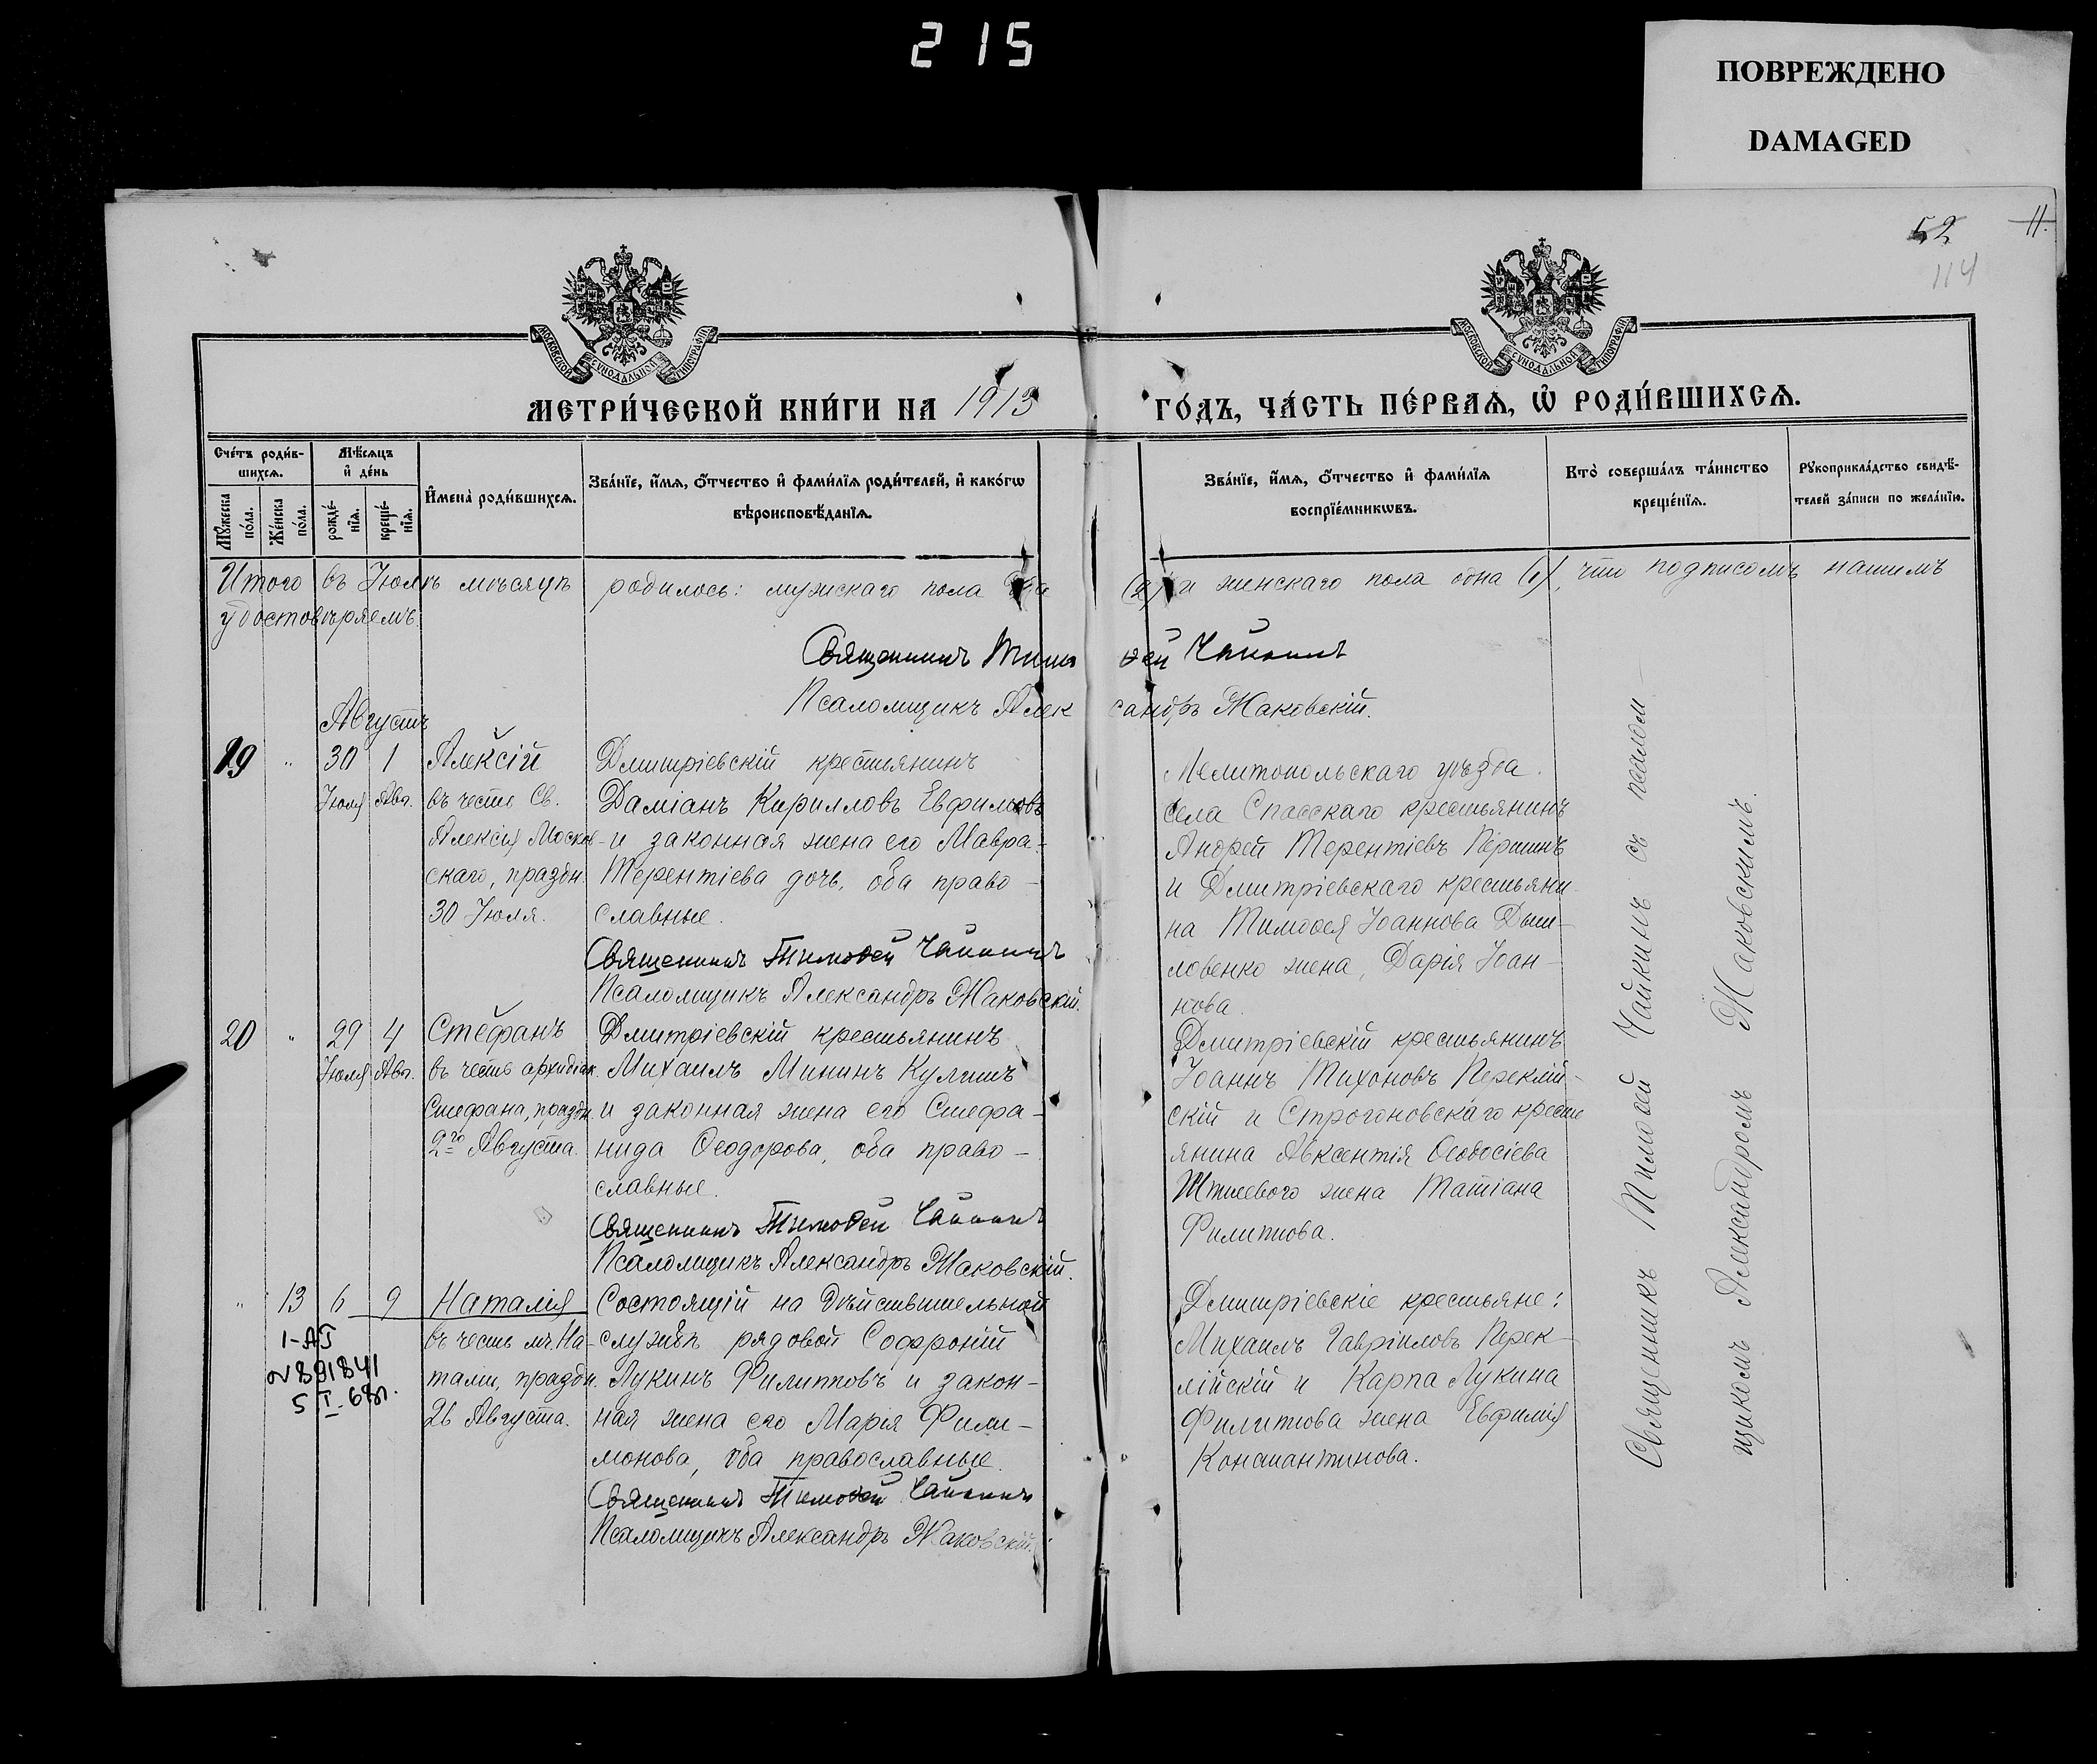 215
ПОВРЕЖДЕНО
DAMAGED
52
11.
114
МОСКОВСКОЙ СУНОДАЛЬНОЙ ТИПОГРАФІИ
МОСКОВСКОЙ СУНОДАЛЬНОЙ ТИПОГРАФІИ
МЕТРИ́ЧЕСКОЙ КНИ́ГИ НА 1913 ГО́ДЪ, ЧА́СТЬ ПЕ́РВАѦ, Ѽ РОДИ́ВШИХСѦ.
Сче́тъ роди́в-
шихсѧ.
Мꙋ́жеска по́ла.
Же́нска по́ла.
Мѣ́сѧцъ
и҆ де́нь
рожде́-
нїѧ.
креще́-
нїѧ.
И҆мена̀ роди́вшихсѧ.
Зва́нїе, и҆́мѧ, ѻ҆́тчество и҆ фами́лїѧ роди́телей, и҆ како́гѡ
вѣроисповѣ́данїѧ.
Зва́нїе, и҆́мѧ, ѻ҆́тчество и҆ фами́лїѧ
воспрїе́мникѡвъ.
Кто̀ соверша́лъ та́инство
креще́нїѧ.
Рꙋкоприкла́дство свидѣ́-
телей за́писи по жела́нїю.
Итого въ Іюлѣ мѣсяцѣ родилось: мужскаго пола два (2) и женскаго пола одна (1), что подписомъ нашимъ
удостовѣряемъ.
Священникъ Тимоѳей Чайкинъ
Псаломщикъ Александръ Жаковскій.
Августъ
19 " 30 1 Алексій
Іюля Авг. въ честь Св.
Алексія Москов-
скаго, праздн.
30 Іюля.
Дмитріевскій крестьянинъ
Даміанъ Кирилловъ Евфимовъ
и законная жена его Мавра
Терентіева дочь, оба право-
славные.
Священникъ Тимоѳей Чайкинъ
Псаломщикъ Александръ Жаковскій.
Мелитопольскаго уѣзда
села Спасскаго крестьянинъ
Андрей Терентіевъ Першинъ
и Дмитріевскаго крестьяни-
на Тимоѳея Іоаннова
жена, Дарія Іоан-
нова.
20 " 29 4 Стефанъ
Іюля Авг. въ честь архидіак.
Стефана, праздн.
2го Августа.
Дмитріевскій крестьянинъ
Михаилъ Мининъ Кулишъ
и законная жена его Стефа-
нида Ѳеодорова, оба право-
славные.
Священникъ Тимоѳей Чайкинъ
Псаломщикъ Александръ Жаковскій.
Дмитріевскій крестьянинъ
Іоаннъ Тихоновъ Переклій-
скій и Строгоновскаго кресть
янина Авксентія Ѳеодосіева
жена Татіана
Филиппова.
" 13 6 9 Наталія
въ честь мч. На-
таліи, праздн.
26 Августа.
1-АЯ
№ 891841
5 I-68г.
Состоящій на дѣйствительной
службѣ рядовой Софроній
Лукинъ Филипповъ и закон-
ная жена его Марія Фили-
монова, оба православные.
Священникъ Тимоѳей Чайкинъ
Псаломщикъ Александръ Жаковскій.
Дмитріевскіе крестьяне:
Михаилъ ГавріиловъПерек-
лійскій и Карпа Лукина
Филиппова жена Евфимія
Константинова.
Священникъ Тимоѳей Чайкинъ съ псалом-
щикомъ Александромъ Жаковскимъ.